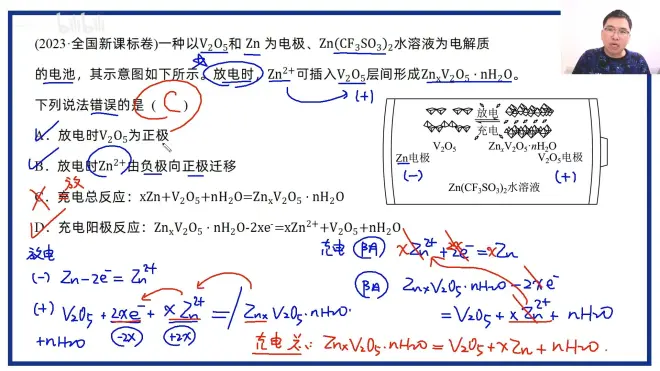 bilibili
(2023·全国新课标卷)一种以V₂O₅和 Zn 为电极、Zn(CF₃SO₃)₂水溶液为电解质
的电池,其示意图如下所示。放电时,Zn²⁺可插入V₂O₅层间形成ZnₓV₂O₅·nH₂O。
下列说法错误的是 ( C )
(+)
A. 放电时V₂O₅为正极
B. 放电时Zn²⁺由负极向正极迁移
放
C. 充电总反应:xZn+V₂O₅+nH₂O=ZnₓV₂O₅·nH₂O
D. 充电阳极反应:ZnₓV₂O₅·nH₂O-2xe⁻=xZn²⁺+V₂O₅+nH₂O
放电
充电
V₂O₅ ZnₓV₂O₅·nH₂O
Zn电极 V₂O₅电极
(-) (+)
Zn(CF₃SO₃)₂水溶液
放电
(-) Zn-2e⁻=Zn²⁺
(+) V₂O₅+2xe⁻+xZn²⁺=ZnₓV₂O₅·nH₂O
-2x +2x
+nH₂O
充电 阴 xZn²⁺+2xe⁻=xZn
阳 ZnₓV₂O₅·nH₂O-2xe⁻
=V₂O₅+xZn²⁺+nH₂O
充电总:ZnₓV₂O₅·nH₂O=V₂O₅+xZn+nH₂O.